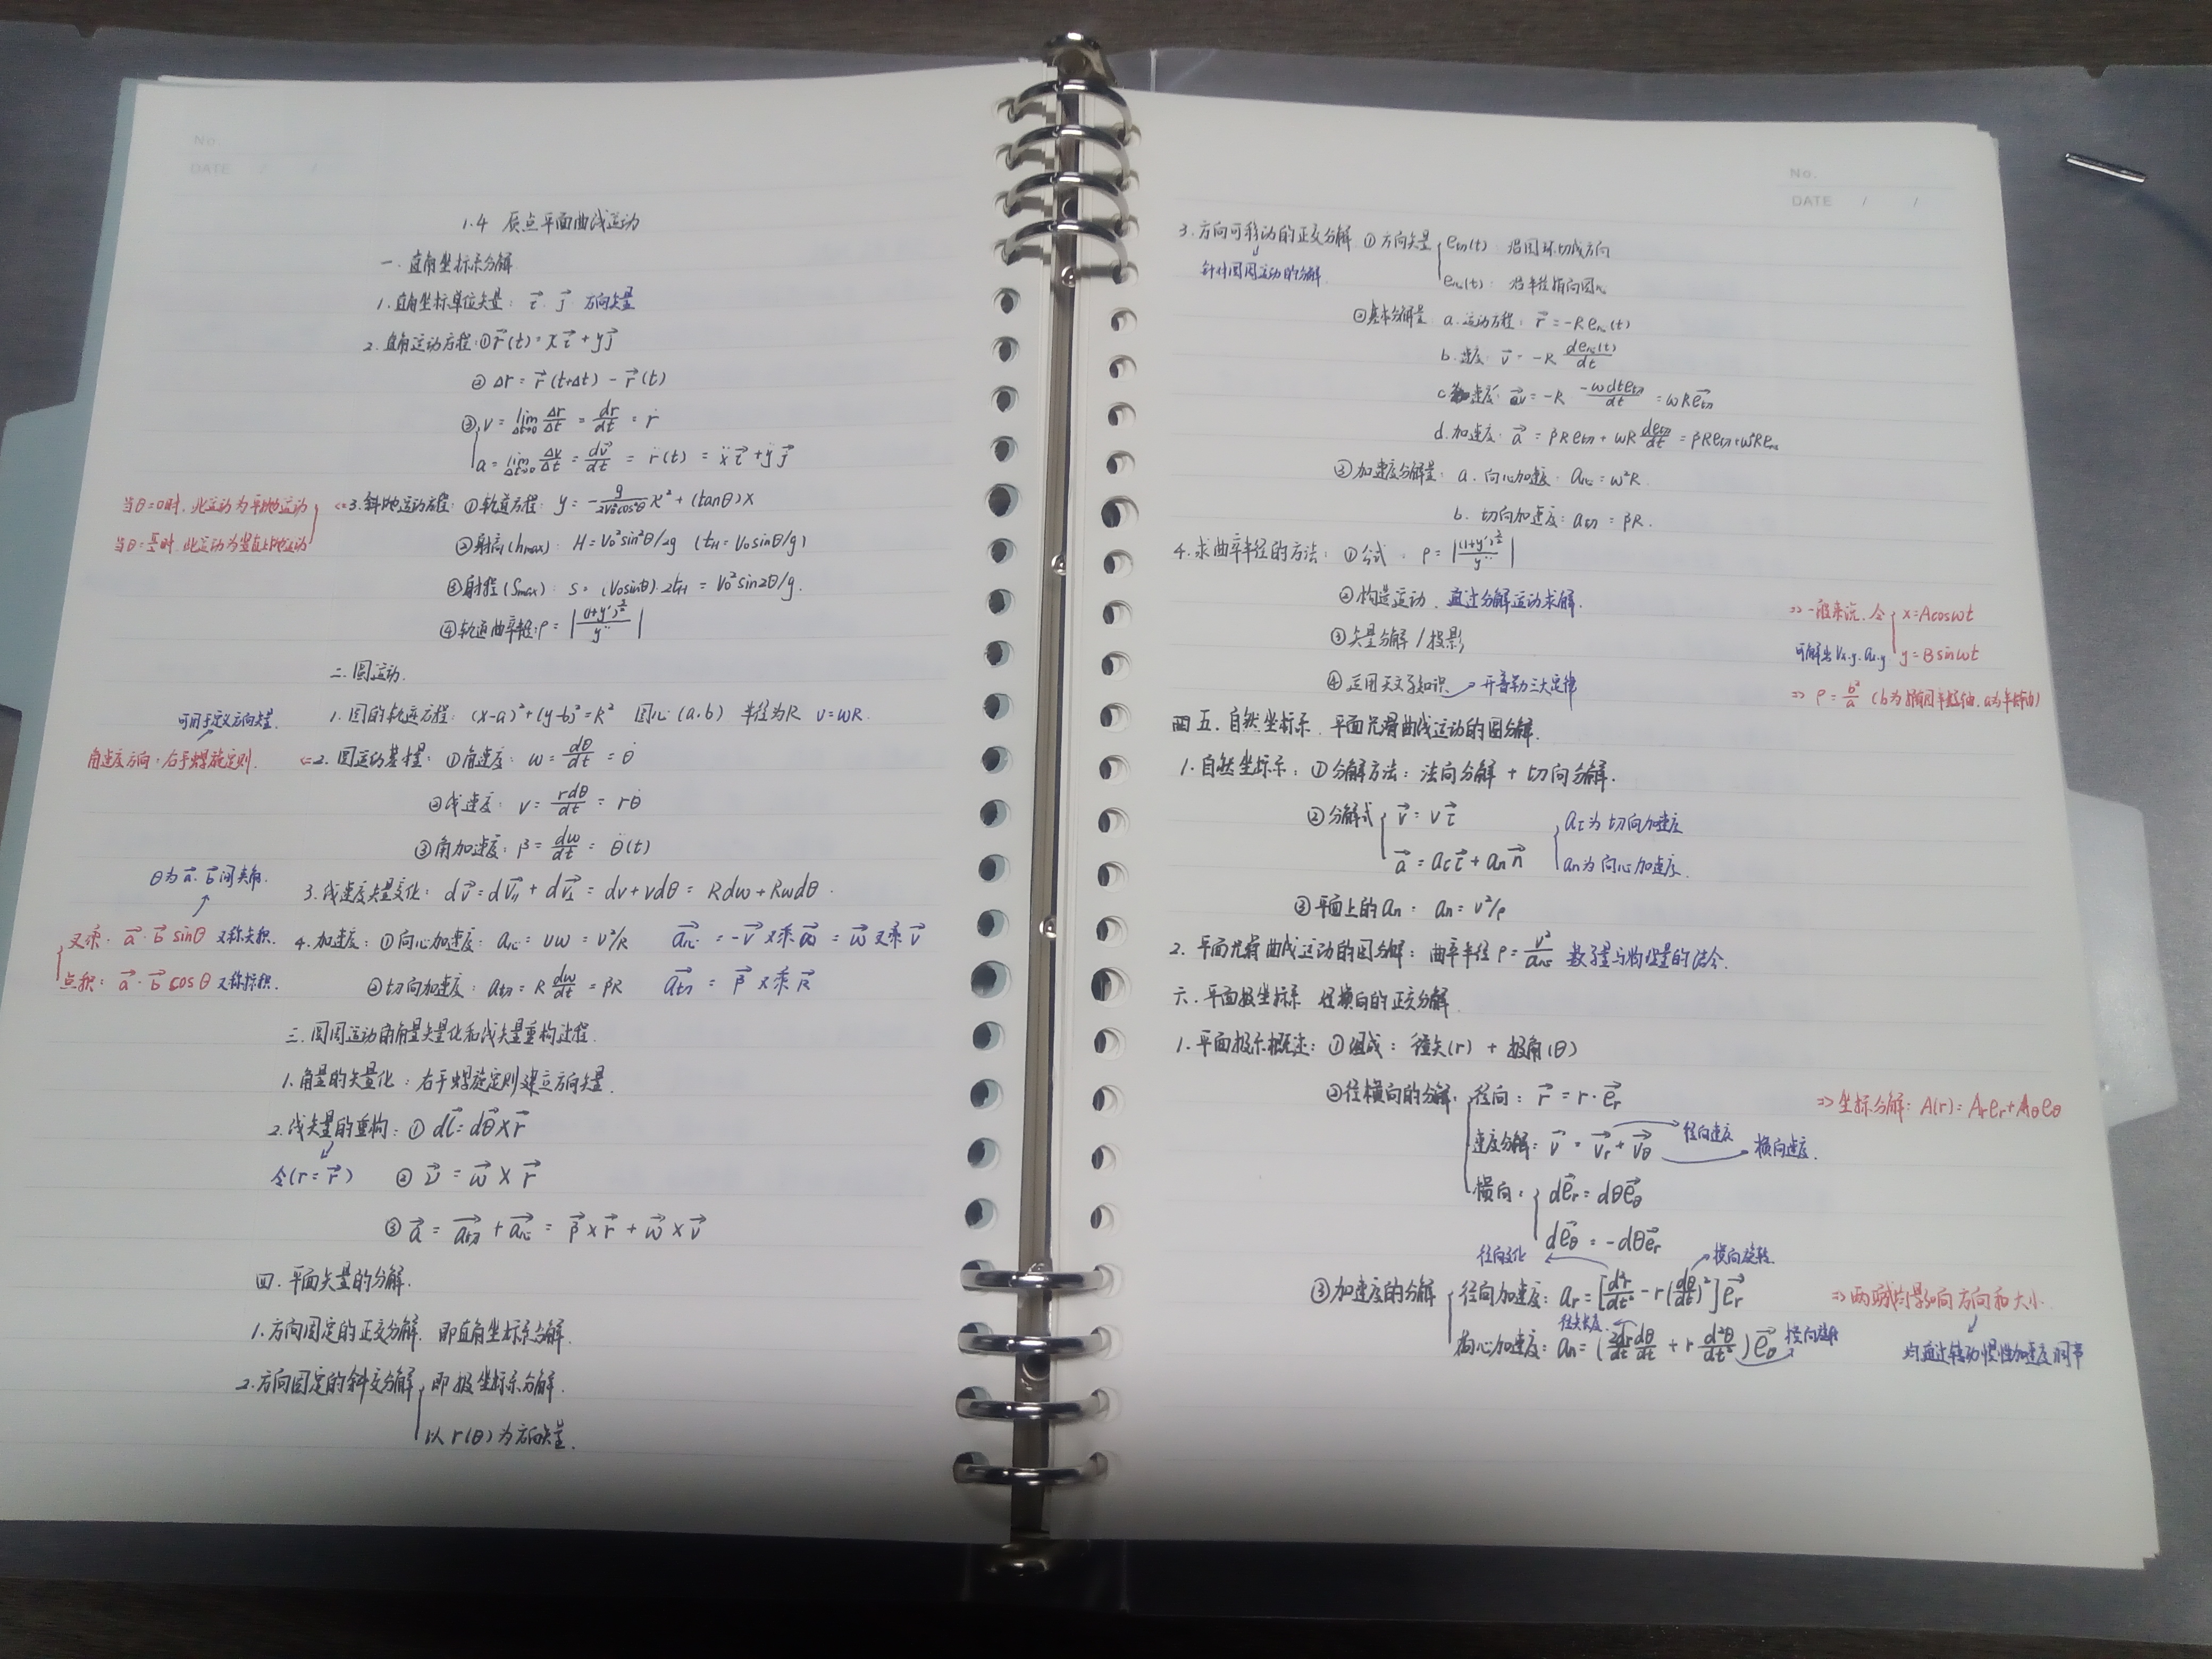 No.
DATE / /
1.4 质点平面曲线运动
一. 直角坐标系分解
1. 直角坐标单位矢量: i⃗. j⃗ 方向矢量
2. 直角运动方程: ① r⃗(t) = x i⃗ + y j⃗
② Δr = r⃗(t+Δt) - r⃗(t)
③ v = lim Δt→0 Δr/Δt = dr/dt = ṙ
a = lim Δt→0 Δv/Δt = dv⃗/dt = r̈(t) = ẍ i⃗ + ÿ j⃗
当θ=0时, 此运动为平抛运动
当θ=π/2时, 此运动为竖直上抛运动
3. 斜抛运动方程: ① 轨道方程: y = -g/(2v₀²cos²θ) x² + (tanθ)x
② 射高(hmax): H = V₀²sin²θ/2g (tH = V₀sinθ/g)
③ 射程(Smax): S = (V₀sinθ)·2tH = V₀²sin2θ/g.
④ 轨道曲率半径: ρ = |(1+y')^(3/2)/y''|
二. 圆运动.
1. 圆的轨迹方程: (x-a)²+(y-b)²=R² 圆心(a.b) 半径为R v=ωR.
可用于定义方向矢量.
角速度方向: 右手螺旋定则.
2. 圆运动基本量: ① 角速度: ω = dθ/dt = θ̇
② 线速度: v = rdθ/dt = rθ̇
③ 角加速度: β = dω/dt = θ̈(t)
θ为a⃗. b⃗间夹角.
3. 线速度矢量变化: dv⃗ = dv⃗∥ + dv⃗⊥ = dv + vdθ = Rdω + Rωdθ.
叉乘: a⃗·b⃗ sinθ 又称矢积.
点积: a⃗·b⃗ cosθ 又称标积.
4. 加速度: ① 向心加速度: a心 = vω = v²/R a⃗心 = -v⃗ 叉乘 ω⃗ = ω⃗ 叉乘 v⃗
② 切向加速度: a切 = R dω/dt = βR a⃗切 = β⃗ 叉乘 R⃗
三. 圆周运动的角量矢量化和线矢量重构过程.
1. 角量的矢量化: 右手螺旋定则建立方向矢量.
2. 线矢量的重构: ① dl⃗ = dθ⃗ × r⃗
令(r = r⃗) ② v⃗ = ω⃗ × r⃗
③ a⃗ = a⃗切 + a⃗心 = β⃗ × r⃗ + ω⃗ × v⃗
四. 平面矢量的分解.
1. 方向固定的正交分解. 即直角坐标系分解.
2. 方向固定的斜交分解 即极坐标系分解.
以r(θ)为方向矢量.
No.
DATE / /
3. 方向可移动的正交分解 ① 方向矢量 e切(t) 沿圆环切线方向
针对圆周运动的分解.
e心(t): 沿半径指向圆心
② 基本分解量 a. 运动方程: r⃗ = -R e心(t)
b. 速度: v⃗ = -R de心(t)/dt
c. 速度: v⃗ = -R -ωdt e切/dt = ωR e⃗切
d. 加速度: a⃗ = βR e切 + ωR de切/dt = βR e切 + ω²R e心
③ 加速度分解量: a. 向心加速度: a心 = ω²R.
b. 切向加速度: a切 = βR.
4. 求曲率半径的方法: ① 公式: ρ = |(1+y')^(3/2)/y''|
② 构造运动. 通过分解运动求解.
③ 矢量分解 / 投影
④ 运用天文学知识 → 开普勒三大定律
⇒ 一般来说. 令 x = Acosωt
可解出 Vx.y. ax.y y = Bsinωt
⇒ ρ = b²/a (b为椭圆半短轴. a为半长轴)
五. 自然坐标系. 平面光滑曲线运动的圆分解.
1. 自然坐标系: ① 分解方法: 法向分解 + 切向分解.
② 分解式 v⃗ = v τ⃗
a⃗ = aτ τ⃗ + an n⃗
aτ为切向加速度
an为向心加速度.
③ 平面上的an: an = v²/ρ
2. 平面光滑曲线运动的圆分解: 曲率半径 ρ = v²/a心 数学量与物理量的结合.
六. 平面极坐标系 径横向的正交分解.
1. 平面极系概述: ① 组成: 径矢(r) + 极角(θ)
② 径横向的分解. 径向: r⃗ = r·e⃗r
⇒ 坐标分解: A(r) = Ar er + Aθ eθ
速度分解: v⃗ = v⃗r + v⃗θ 径向速度 横向速度.
横向: de⃗r = dθ e⃗θ
de⃗θ = -dθ e⃗r
径向变化 横向旋转.
③ 加速度的分解 径向加速度: ar = [d²r/dt² - r(dθ/dt)²] e⃗r
⇒ 两项均影响方向和大小.
径矢长度. 横向旋转
向心加速度: an = (2dr/dt dθ/dt + r d²θ/dt²) e⃗θ
均通过转动惯性加速度调节